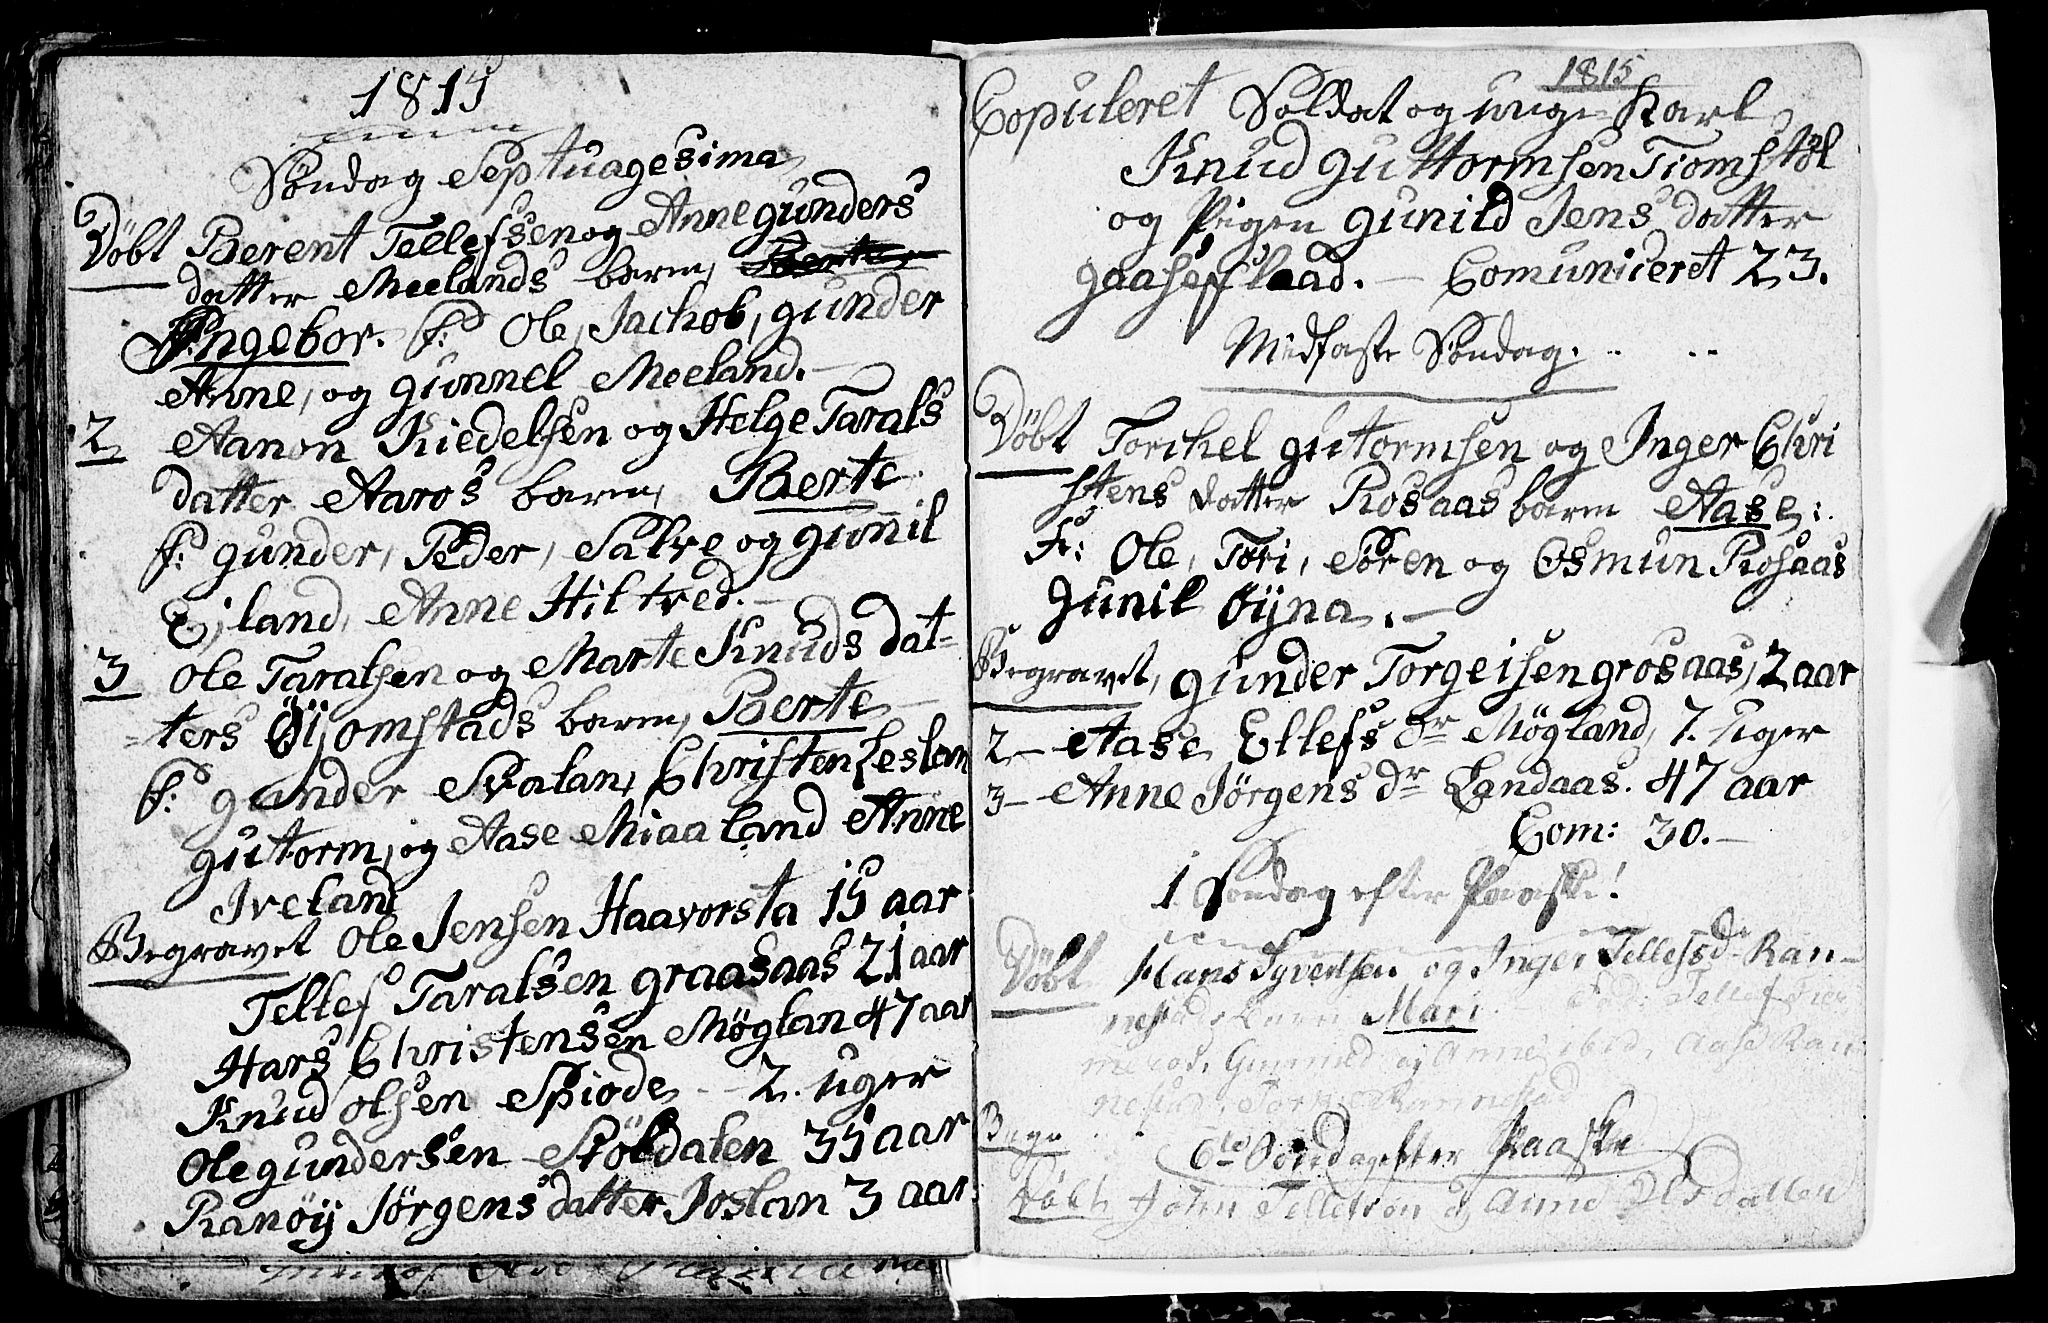 1815
Søndag Septuagesima
Døbt Berent Tellefsen og Anne gunders
datter Moelands barn, Berte
Ingebor. F: Ole, Jachob, gunder
Anne, og gunnel Moeland.
2 Aanon Kiedelsen og Helge Tarals
datter Aaros barn, Berte
F: gunder, Peder, Salve og gunil
Eiland, Anne Hiltved.
3 Ole Taralsen og Marte Knuds dat-
ters Øijomstads barn, Berte
F: gunder Svalan, Christen Leslan
gutorm, og Aase Miaaland Anne
Iveland
Begravet Ole Jensen Haavorsta 15 aar
Tellef Taralsen graasaas 21 aar
Hans Christensen Møglan 47 aar
Knud olsen Spiode - 2. uger
Ole gundersen Støldalen 35 aar
Ranøij Jørgens datter Joslan 3 aar
1815
Copuleret Soldat og unge Karl
Knud guttormsen Tiomstøl
og Pigen gunild Jens datter
gaaseflaad. - Comuniceret 23.
Midfaste Søndag.
Døbt Torchel gutormsen og Inger Chri
stens datter Rosaas barn Aase:
F: Ole, Tøri, Søren og Osmun Rosaas
gunil Øijna. -
Begravet, gunder Torgeisen grosaas, 2 aar
2 - Aase Ellefs dr Møgland, 7. uger
3 - Anne Jørgens dr Landaas. 47 aar
Com: 30. -
1 Søndag efter Paaske!
Døbt Hans Syvertsen og Inger Tellefsd. Ran-
nestads barn Mari. Tellef
Gunnild og Anne ibid, Aase Ran
nestad,
Begr
6te Søndag efter Paaske
Døbt John Tellefsen & Anne datter